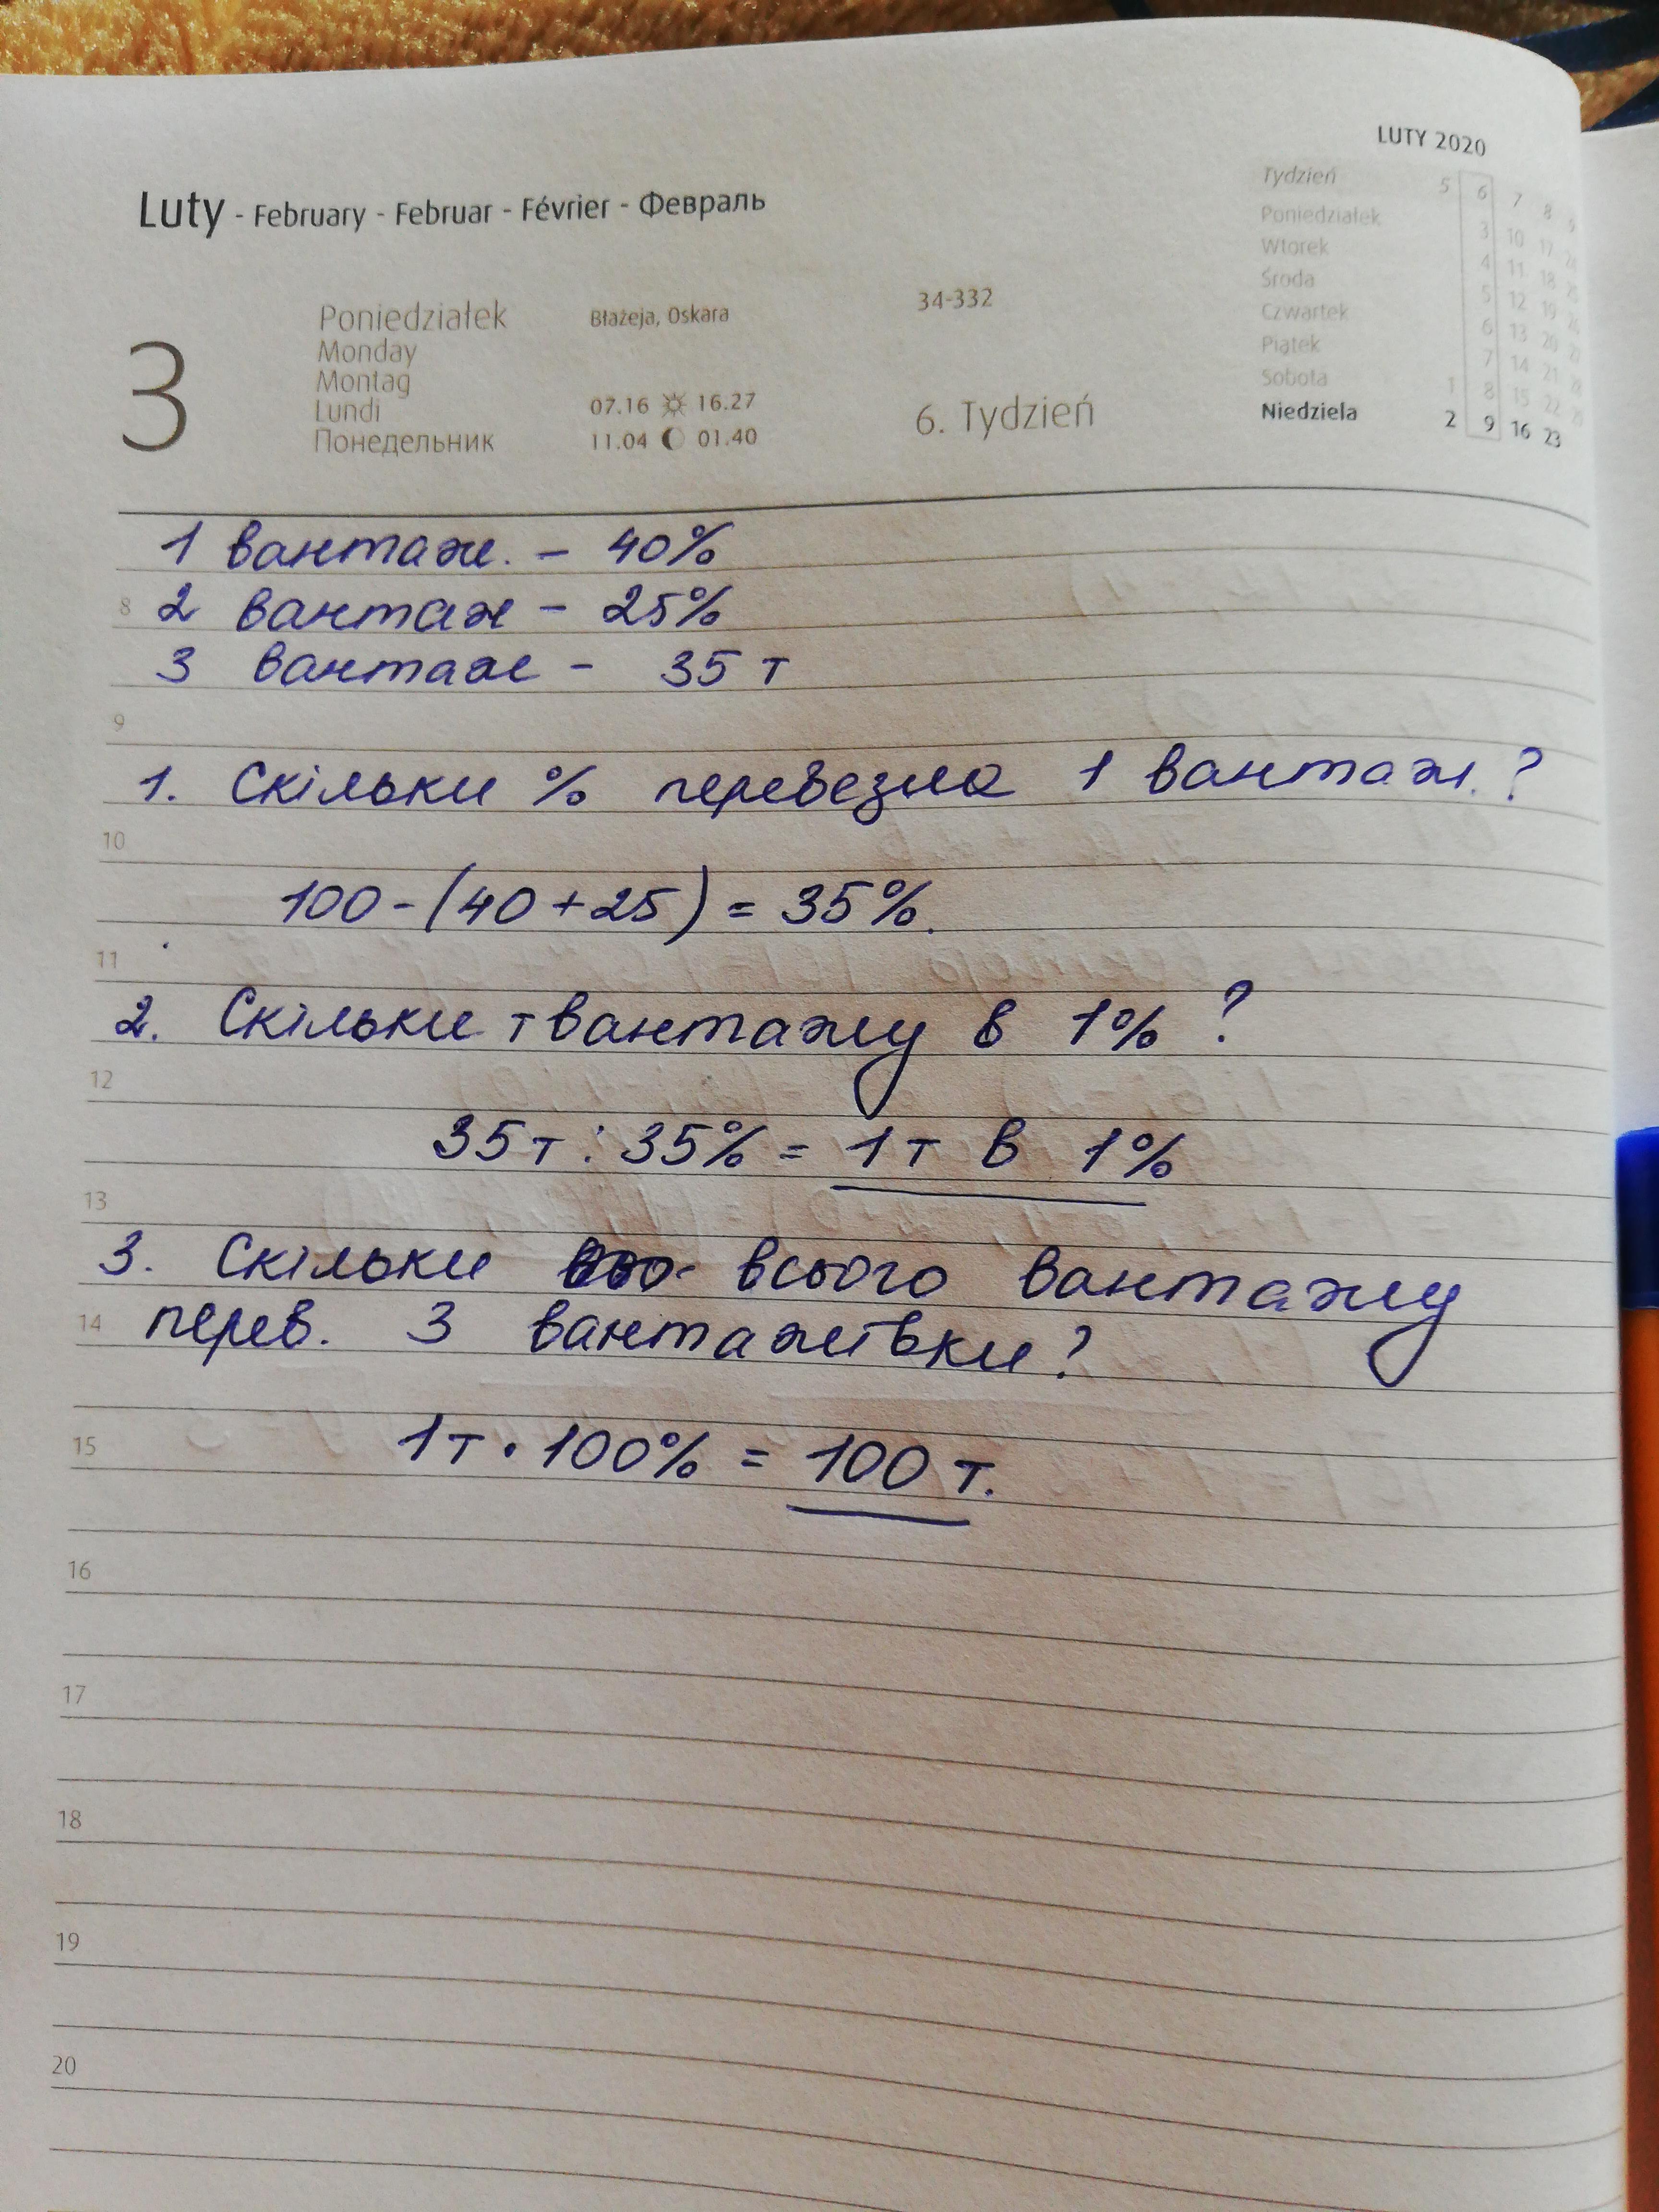 LUTY 2020
Luty - February - Februar - Février - Февраль
Tydzień 5 6 7 8 9
Poniedziałek 3 10 17 24
Wtorek 4 11 18 25
Środa 5 12 19 26
Czwartek 6 13 20 27
Piątek 7 14 21 28
Sobota 1 8 15 22 29
Niedziela 2 9 16 23
3
Poniedziałek
Monday
Montag
Lundi
Понедельник
Błażeja, Oskara
07.16 16.27
11.04 01.40
34-332
6. Tydzień
1 вантаж. - 40%
8 2 вантаж - 25%
3 вантаж - 35 т
9
1. Скільки % перевезла 1 вантаж.?
10
100-(40+25)=35%.
11
2. Скільки т вантажу в 1%?
12
35т:35% = 1т в 1%
13
3. Скільки всього вантажу
14 перев. 3 вантажівки?
15 1т·100% = 100 т.
16
17
18
19
20